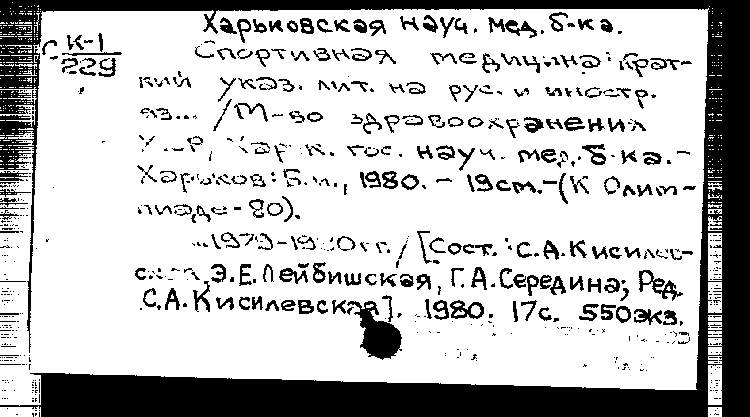 Харьковская науч. мед. б-ка.
К-1
229
Спортивная медицина: Крат-
кий указ. лит. на рус. и иностр.
яз... /М-во здравоохранения
Харьк. гос. науч. мед. б-ка. -
Харьков: Б.и., 1980. - 19см. - (К Олимп-
иаде-80).
...1979-1980гг. / [Сост.: С.А.Кисилев-
ская, Э.Е.Лейбишская, Г.А.Середина; Ред.
С.А.Кисилевская]. 1980. 17с. 550экз.